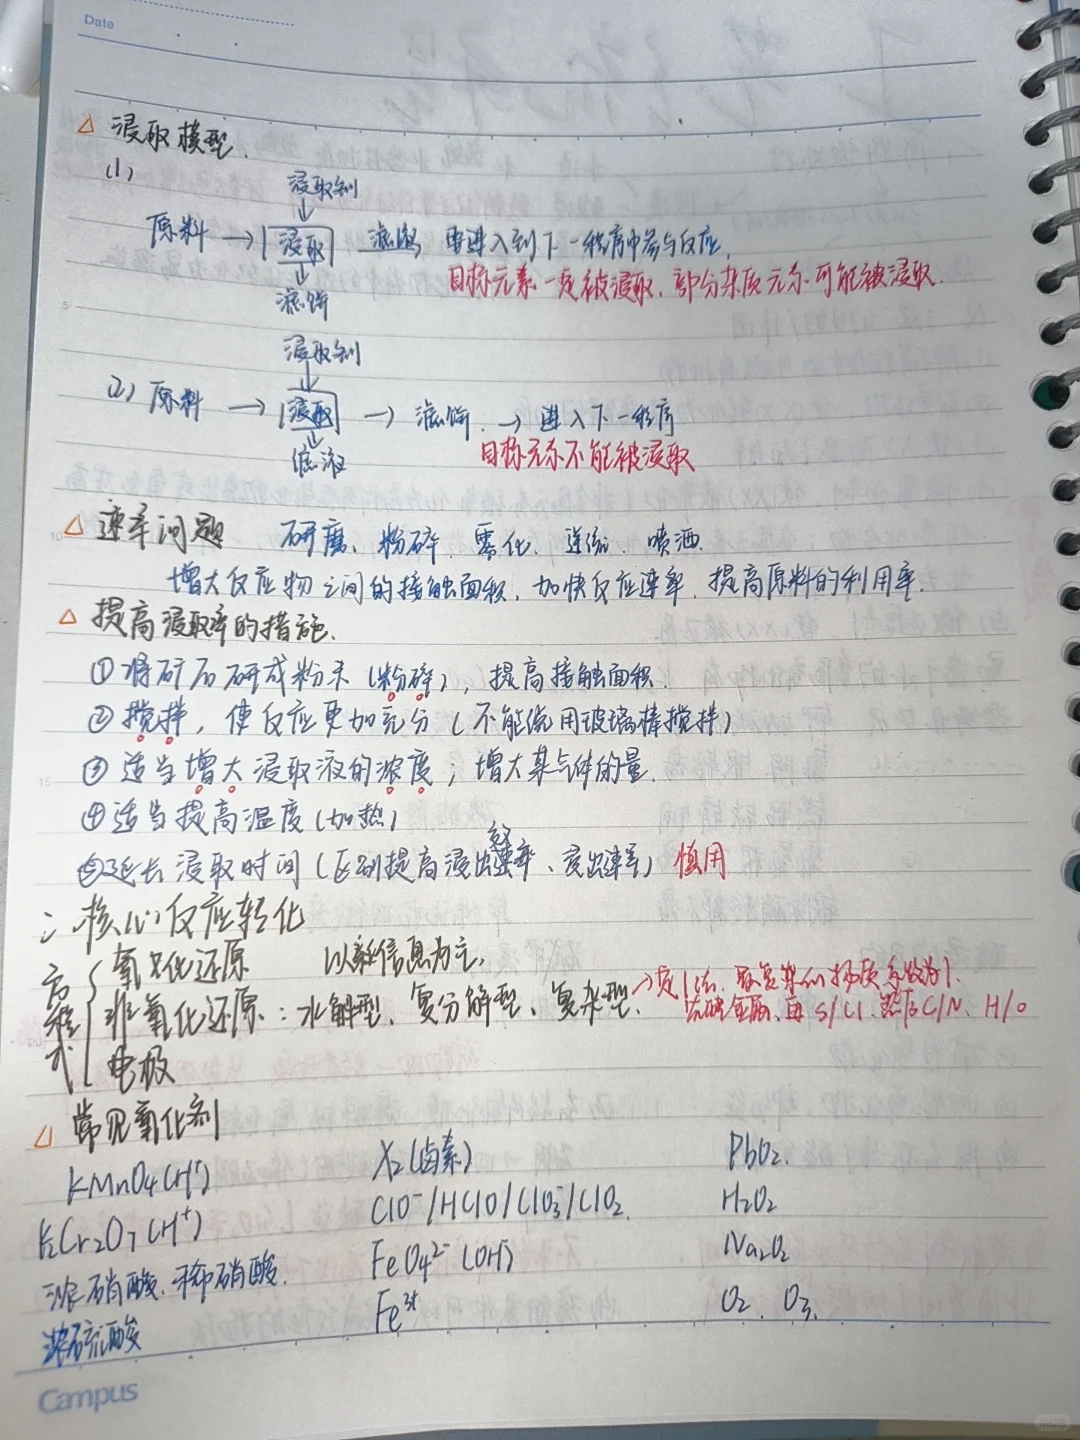 Date
△ 浸取模型.
(1)
浸取剂
↓
原料 → 浸取 滤液 再进入到下一程序中参与反应.
目标元素一定被浸取, 部分杂质元素可能被浸取.
↓
滤饼
浸取剂
↓
(2) 原料 → 浸取 → 滤饼 → 进入下一程序
目标元素不能被浸取
↓
滤液
△ 速率问题 研磨、粉碎、雾化、逆流、喷洒.
增大反应物之间的接触面积, 加快反应速率, 提高原料的利用率.
△ 提高浸取率的措施.
① 将矿石研成粉末(粉碎), 提高接触面积.
② 搅拌, 使反应更加充分(不能说用玻璃棒搅拌)
③ 适当增大浸取液的浓度; 增大某气体的量.
④ 适当提高温度(加热)
⑤ 延长浸取时间(区别提高浸出率、浸出速率) 慎用
二、核心反应转化
方程式
氧化还原 以新信息为主,
非氧化还原: 水解型、复分解型、复杂型. → 定1法, 最复杂的物质系数为1.
先配金属, 再S/Cl, 然后C/N, H/O
电极
△ 常见氧化剂
KMnO4(H⁺) X2(卤素) PbO2.
K2Cr2O7(H⁺) ClO⁻/HClO/ClO3⁻/ClO2. H2O2
浓硝酸、稀硝酸. FeO4²⁻(OH⁻) Na2O2
浓硫酸 Fe³⁺ O2、O3.
Campus